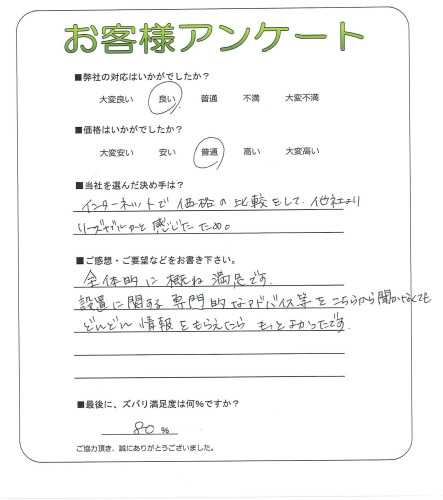 お客様アンケート
■弊社の対応はいかがでしたか？
大変良い 良い 普通 不満 大変不満
■価格はいかがでしたか？
大変安い 安い 普通 高い 大変高い
■当社を選んだ決め手は？
インターネットで価格の比較をして、他社より
リーズナブルかと感じたため。
■ご感想・ご要望などをお書き下さい。
全体的に概ね満足です。
設置に関する専門的なアドバイス等をこちらから聞かなくても
どんどん情報をもらえたらもっとよかったです。
■最後に、ズバリ満足度は何％ですか？
80 %
ご協力頂き、誠にありがとうございました。